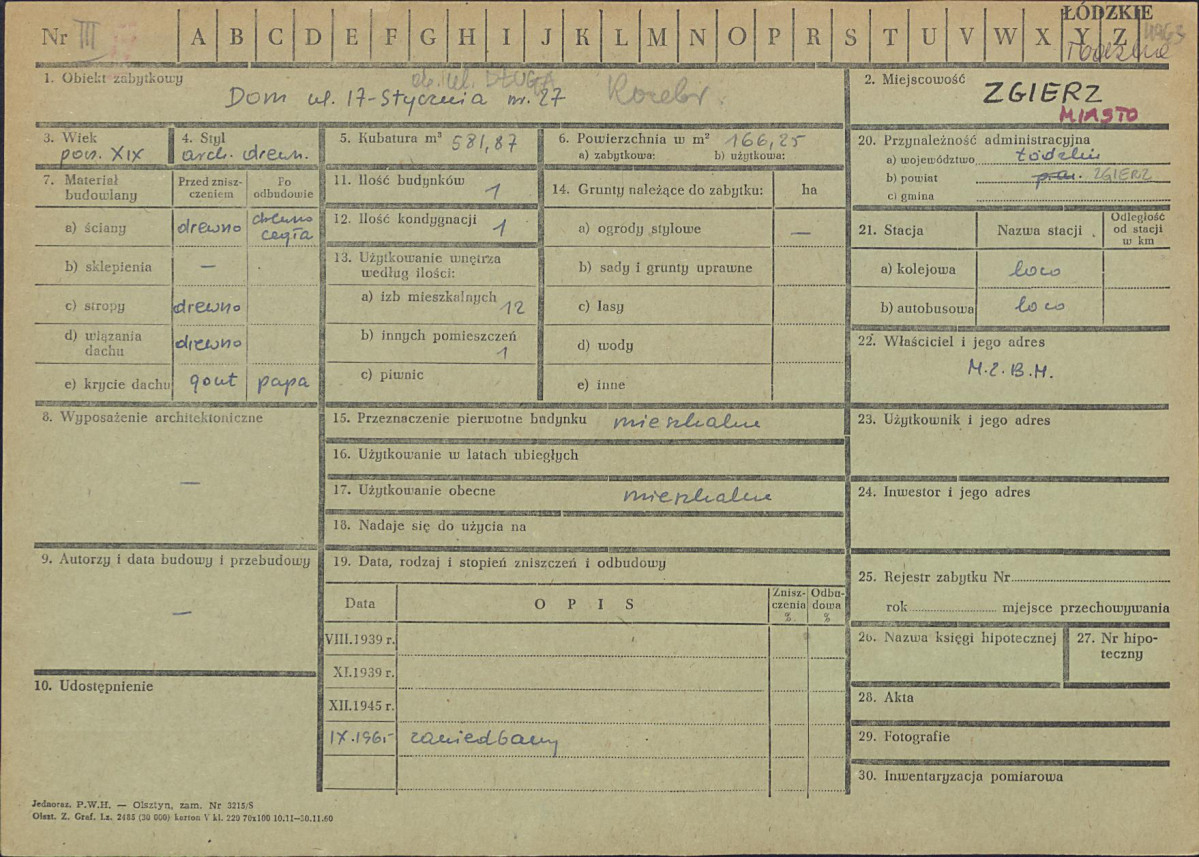 ŁÓDZKIE
Nr III A B C D E F G H I J K L M N O P R S T U V W X Y Z
1. Obiekt zabytkowy
ob. ul. DŁUGA
Dom ul. 17-Stycznia nr. 27
2. Miejscowość
ZGIERZ
MIASTO
3. Wiek
poł. XIX
4. Styl
arch. drewn.
5. Kubatura m³ 581,87
6. Powierzchnia w m² 166,25
a) zabytkowa: b) użytkowa:
7. Materiał budowlany
Przed zniszczeniem
Po odbudowie
a) ściany drewno drewno cegła
b) sklepienia —
c) stropy drewno
d) wiązania dachu drewno
e) krycie dachu gont papa
8. Wyposażenie architektoniczne
—
9. Autorzy i data budowy i przebudowy
—
10. Udostępnienie
11. Ilość budynków 1
12. Ilość kondygnacji 1
13. Użytkowanie wnętrza
według ilości:
a) izb mieszkalnych 12
b) innych pomieszczeń 1
c) piwnic
14. Grunty należące do zabytku: ha
a) ogrody stylowe —
b) sady i grunty uprawne
c) lasy
d) wody
e) inne
15. Przeznaczenie pierwotne budynku mieszkalne
16. Użytkowanie w latach ubiegłych
17. Użytkowanie obecne mieszkalne
18. Nadaje się do użycia na
19. Data, rodzaj i stopień zniszczeń i odbudowy
Data OPIS Zniszczenia % Odbudowa %
VIII.1939 r.
XI.1939 r.
XII.1945 r.
IX.1965 zaniedbany
20. Przynależność administracyjna
a) województwo łódzkie
b) powiat ZGIERZ
c) gmina
21. Stacja Nazwa stacji Odległość od stacji w km
a) kolejowa loco
b) autobusowa loco
22. Właściciel i jego adres
M.Z.B.M.
23. Użytkownik i jego adres
24. Inwestor i jego adres
25. Rejestr zabytku Nr
rok miejsce przechowywania
26. Nazwa księgi hipotecznej
27. Nr hipoteczny
28. Akta
29. Fotografie
30. Inwentaryzacja pomiarowa
Jednoraz. P.W.H. — Olsztyn, zam. Nr 3215/S
Olszt. Z. Graf. Lz. 2485 (30 000) karton V kl. 220 70x100 10.11—30.11.60